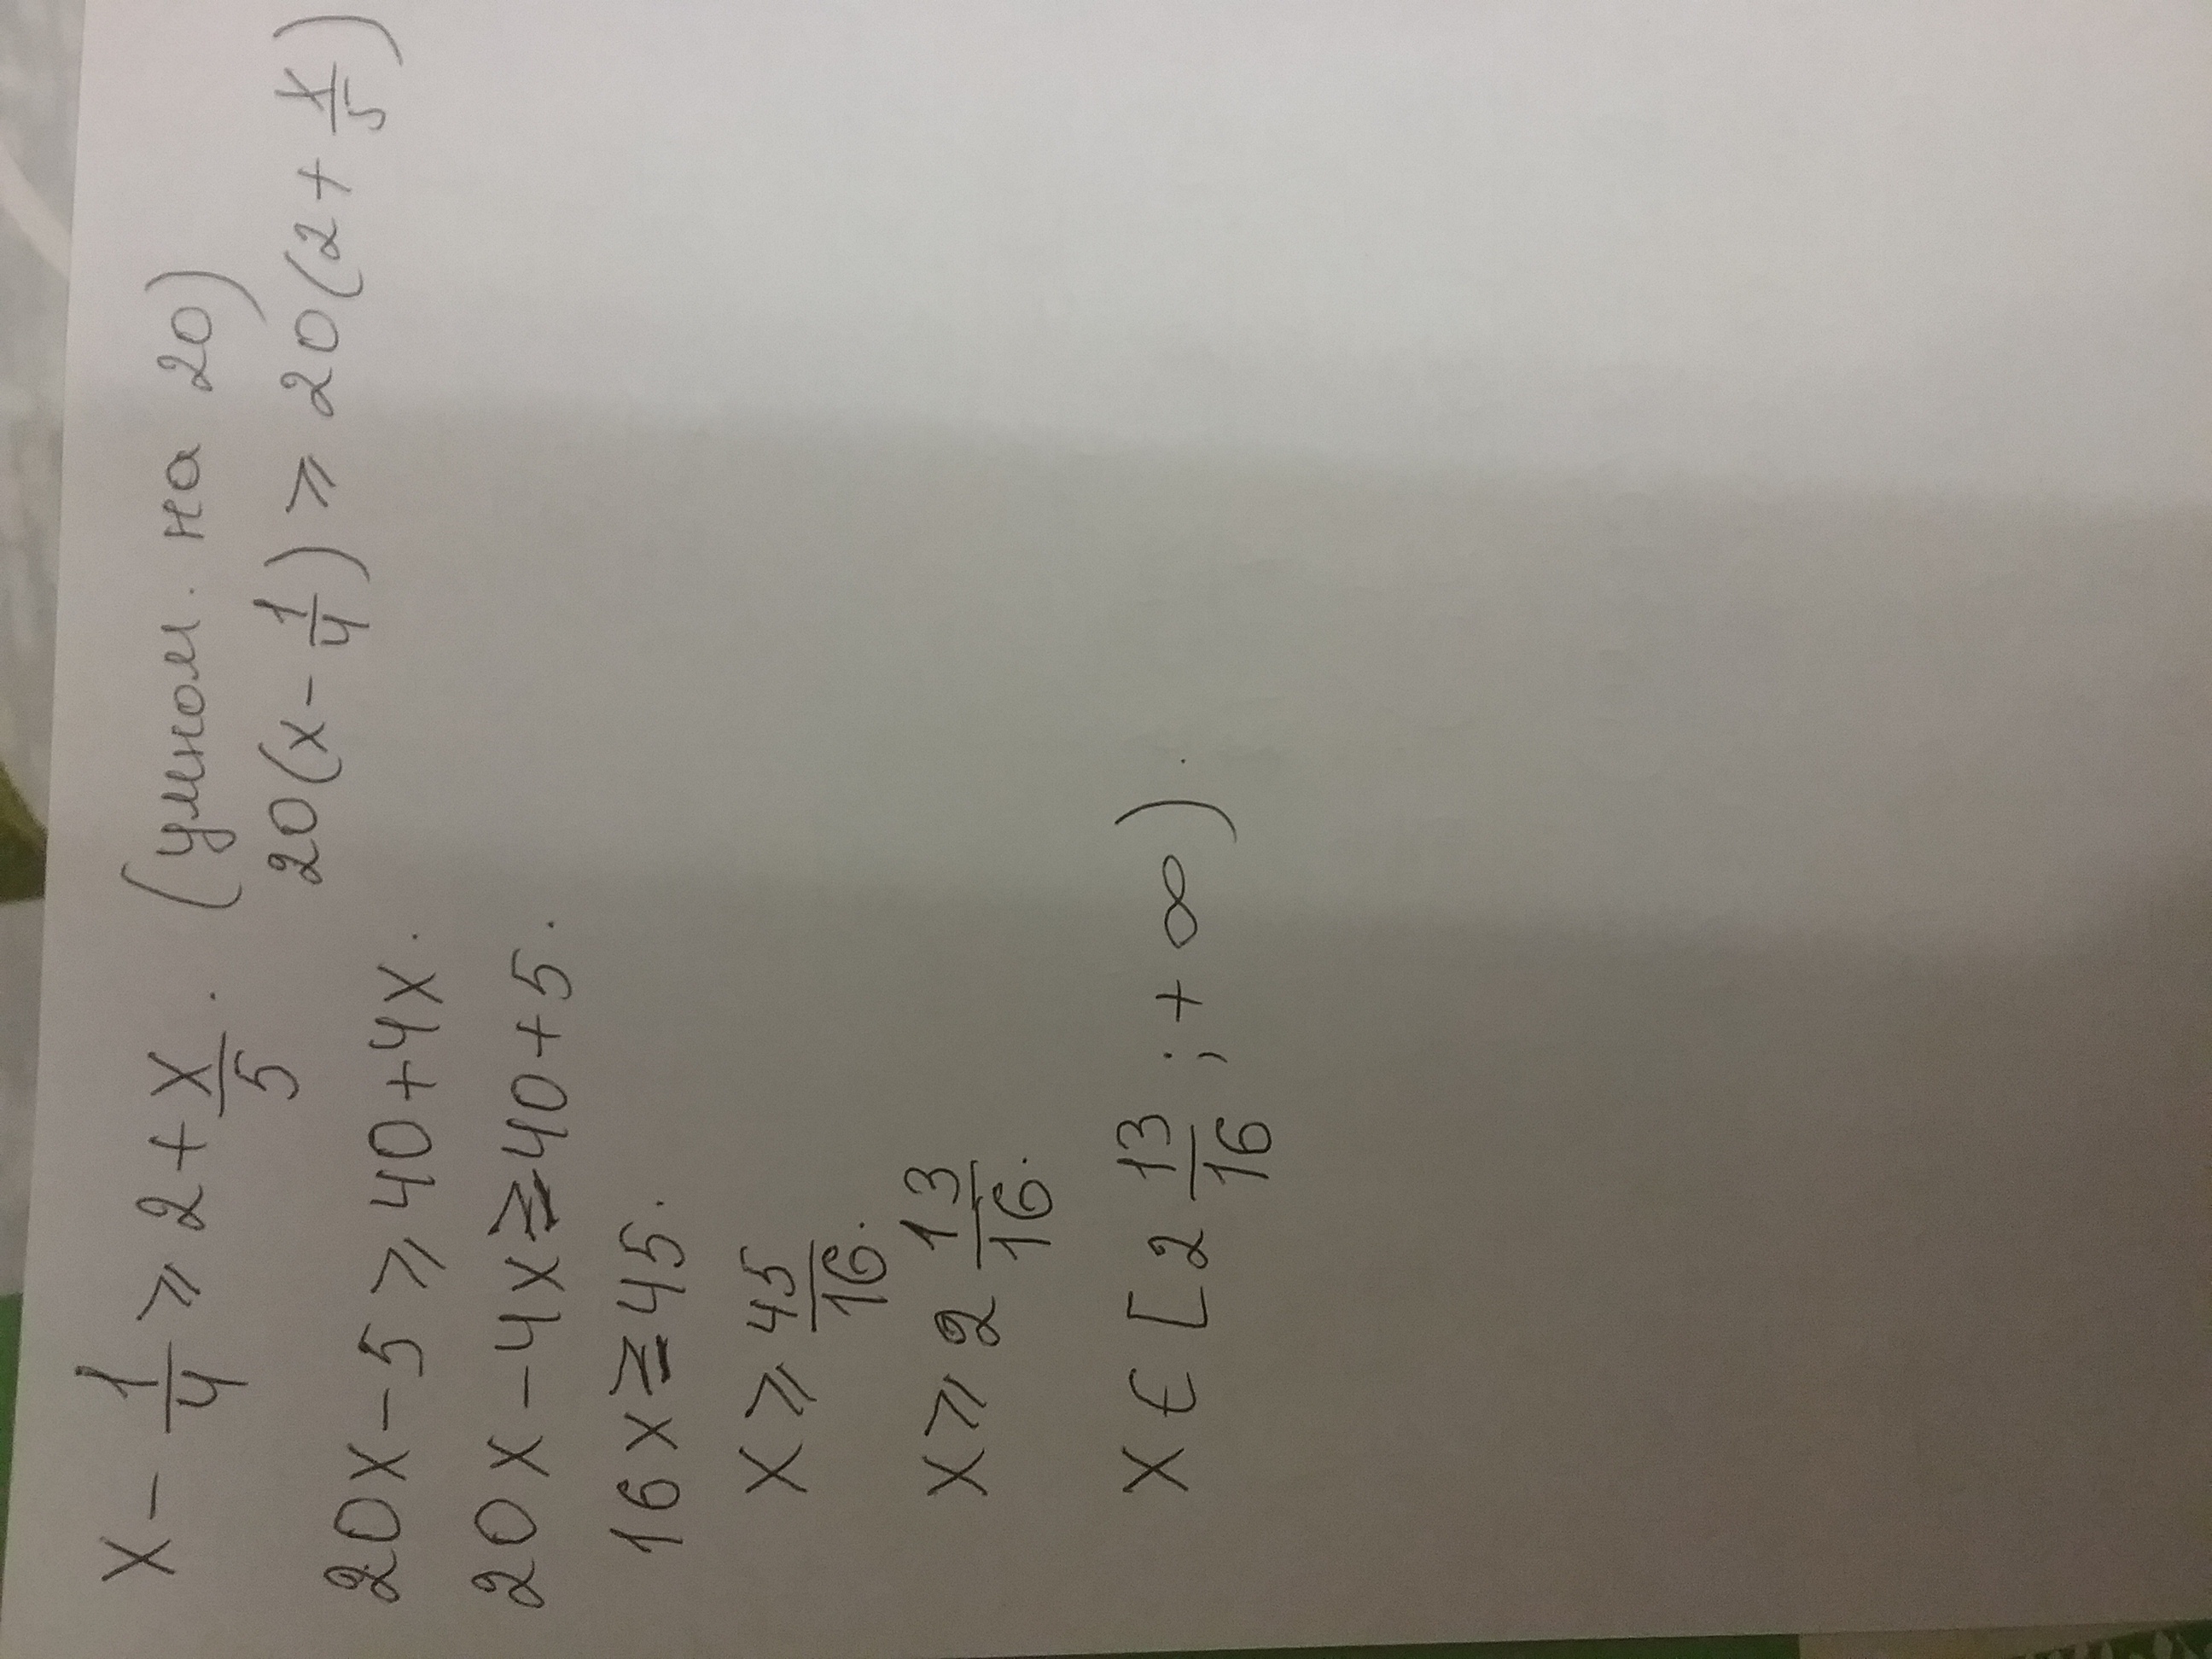 x - 1/4 ⩾ 2 + x/5. (умнож. на 20)
20(x - 1/4) ⩾ 20(2 + x/5)
20x - 5 ⩾ 40 + 4x.
20x - 4x ≥ 40 + 5.
16x ≥ 45.
x ⩾ 45/16.
x ⩾ 2 13/16.
x ∈ [2 13/16 ; + ∞).